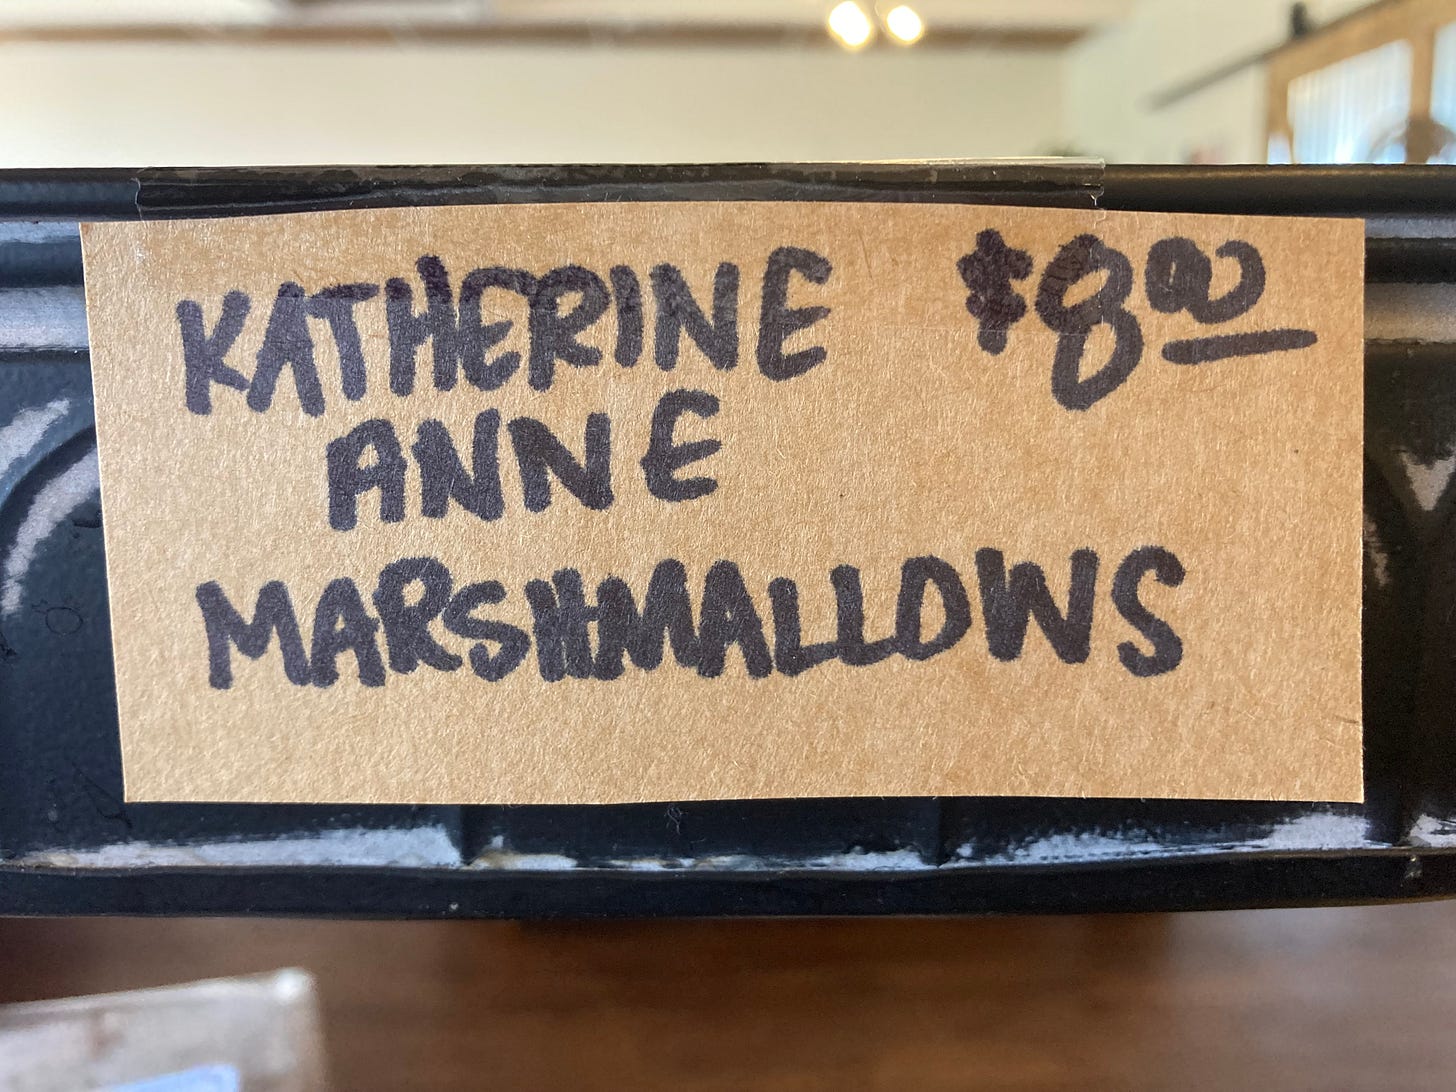 KATHERINE $8.00
ANNE
MARSHMALLOWS